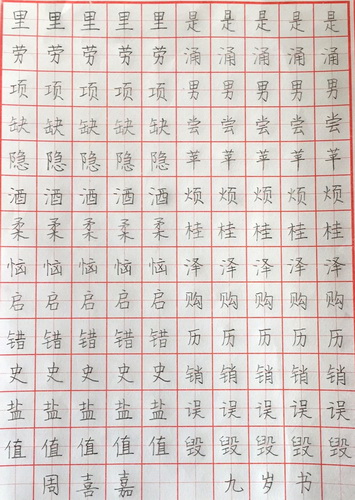 里里里里里是是是是是
劳劳劳劳劳涌涌涌涌涌
项项项项项男男男男男
缺缺缺缺缺尝尝尝尝尝
隐隐隐隐隐苹苹苹苹苹
酒酒酒酒酒烦烦烦烦烦
柔柔柔柔柔桂桂桂桂桂
恼恼恼恼恼泽泽泽泽泽
启启启启启购购购购购
错错错错错历历历历历
史史史史史销销销销销
盐盐盐盐盐误误误误误
值值值值值毁毁毁毁毁
周喜嘉 九岁书